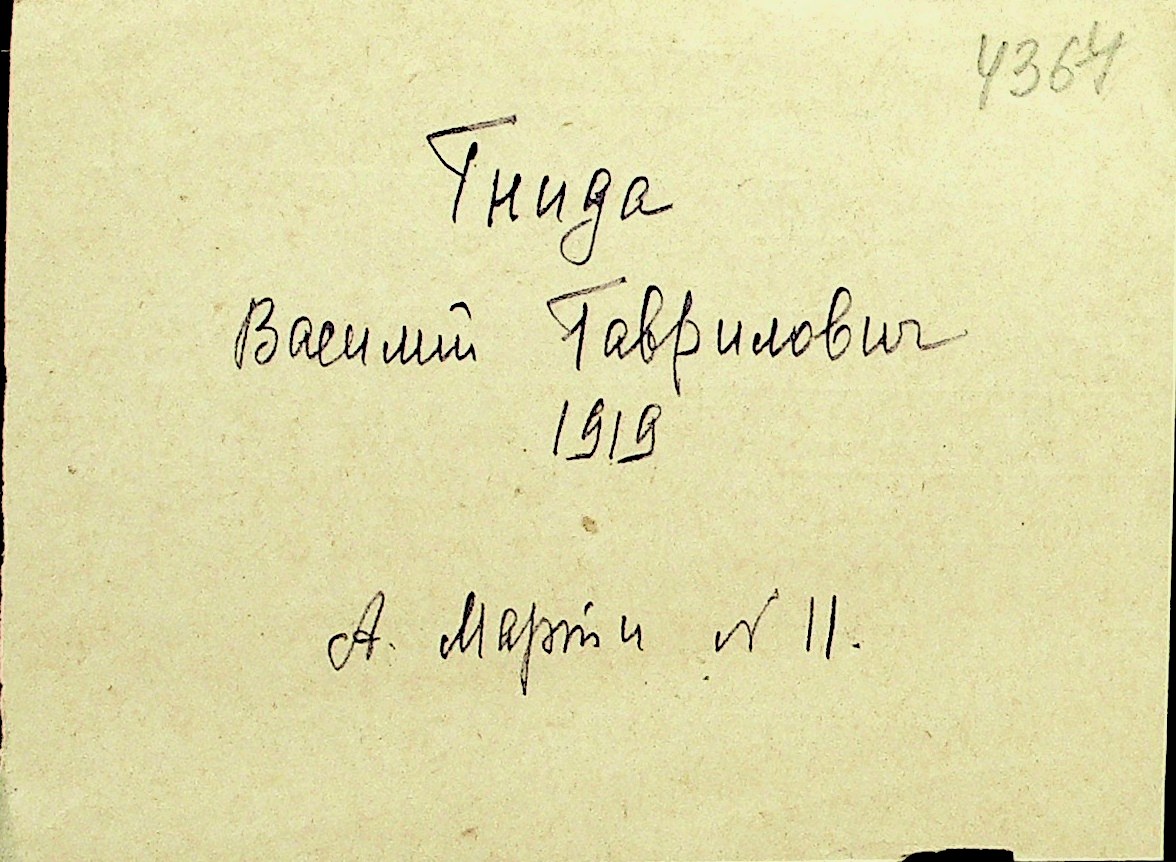 4364
Гнида
Василий Гаврилович
1919
А. Мартин № 11.